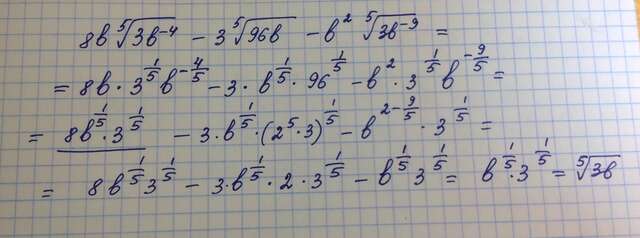 8b ⁵√(3b⁻⁴) − 3 ⁵√(96b) − b² ⁵√(3b⁻⁹) =
= 8b · 3^(1/5) b^(−4/5) − 3 · b^(1/5) · 96^(1/5) − b² · 3^(1/5) b^(−9/5) =
= 8b^(1/5) · 3^(1/5) − 3 · b^(1/5) · (2⁵ · 3)^(1/5) − b^(2−9/5) · 3^(1/5) =
= 8b^(1/5) 3^(1/5) − 3 · b^(1/5) · 2 · 3^(1/5) − b^(1/5) 3^(1/5) = b^(1/5) · 3^(1/5) = ⁵√(3b)